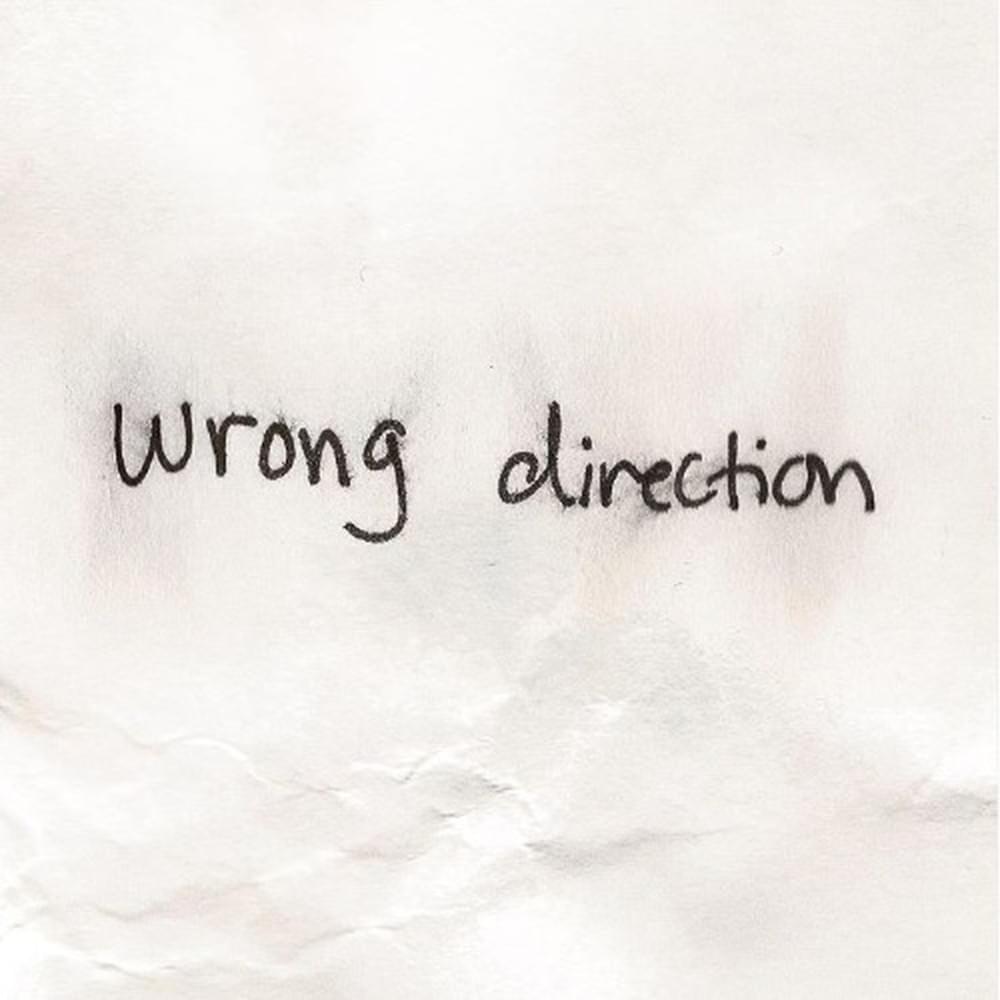 wrong direction